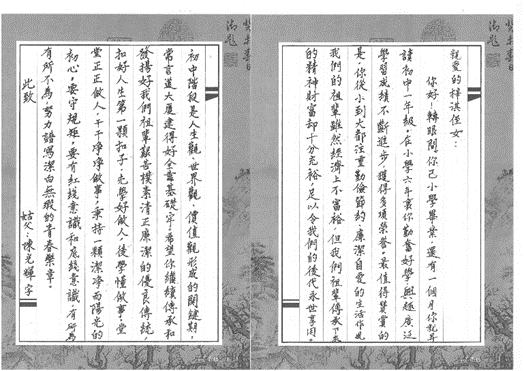 亲爱的梓淇侄女：
你好！轉眼間，你已小學畢業，還有一個月你就要
讀初中一年級。在小學六年裏你勤奮好學，興趣廣泛，
學習成績不斷進步，獲得多項榮譽。最值得贊賞的
是，你從小到大都注重勤儉節約、廉潔自愛的生活作風。
我們的祖輩雖然經濟上不富裕，但我們祖輩傳承下來
的精神財富却十分充裕，足以令我們的後代永世享用。
初中階段是人生觀、世界觀、價值觀形成的關鍵期，
常言道大厦建得好全靠基礎牢！希望你繼續傳承和
發揚好我們祖輩艱苦樸素、清正廉潔的優良傳統，
扣好人生第一顆扣子，先學好做人，後學懂做事！堂
堂正正做人，干干净净做事！秉持一顆潔净而陽光的
初心，要守規矩，要有紅綫意識和底綫意識，有所為
有所不為，努力譜寫潔白無瑕的青春樂章。
此致
姑父：陳光輝字